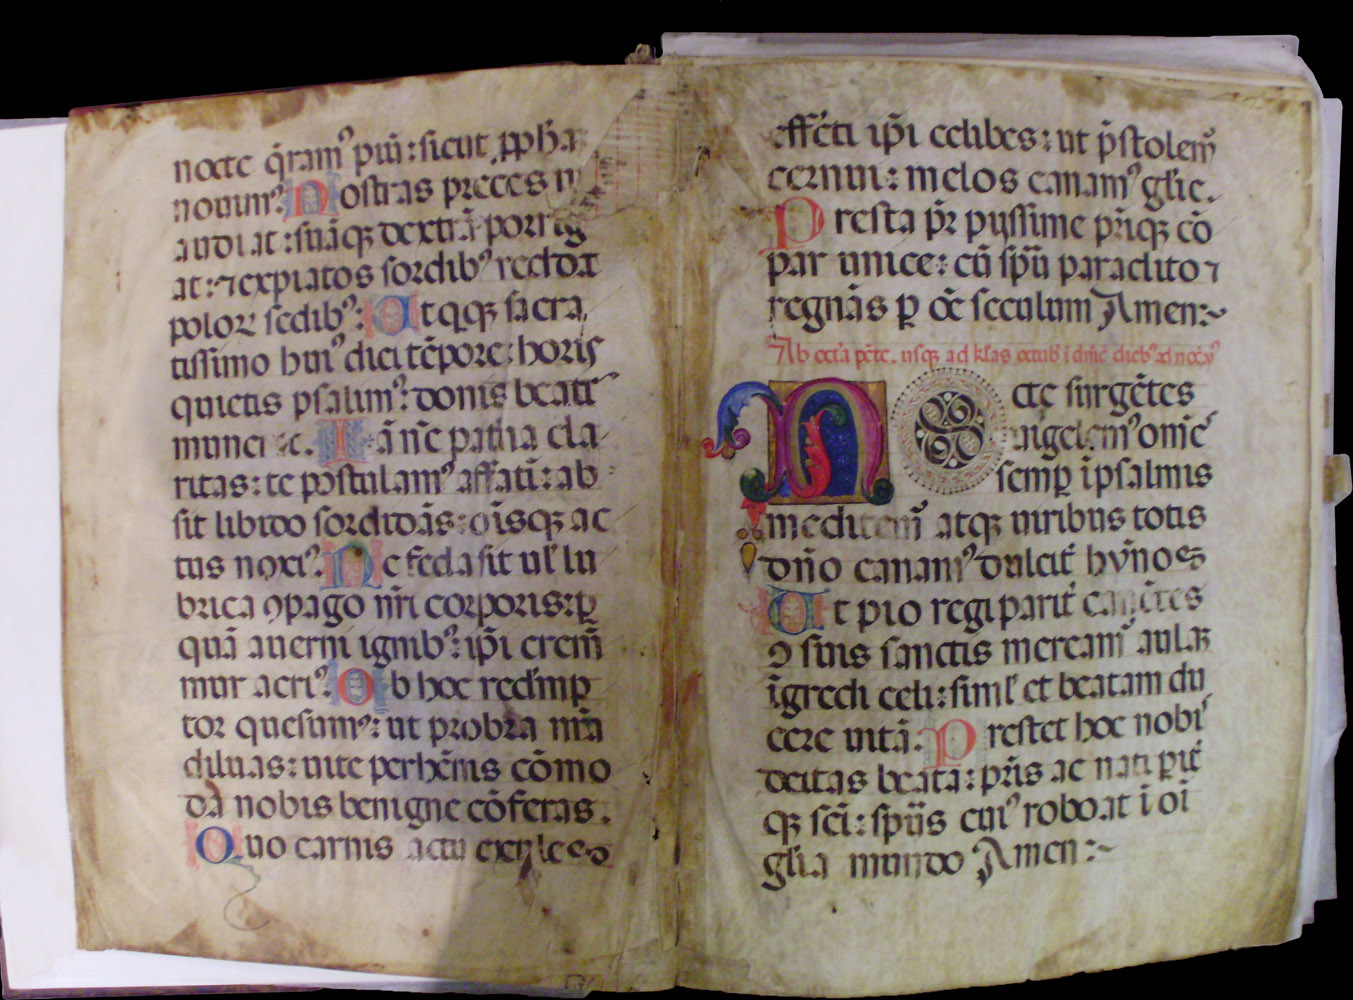 nocte q̄ram᾽ piū: sicut ꝓph̄a
nouim᾽: Nostras preces
audiat: suāq; dextrā porrig
at: ⁊ expiatos sordib᾽ reddat
poloꝝ sedib᾽: Ut qq; sacra
tissimo hui᾽ diei tēpore: horis
quietis psalim᾽: donis beatis
muneret. Iā nc̄ pat̄na cla
ritas: te postulam᾽ affatī: ab
sit libido sordidās: oīsq; ac
tus noxi᾽: Ne feda sit ul̄ lu
brica ꝯpago nr̄i corporis: ꝑ
quā auerni ignib᾽: ip̄i crem̄
mur acri᾽: Ob hoc redēmp
tor quesum᾽: ut probra nr̄a
diluas: uite perhēnis cōmo
da nobis benigne cōferas.
Quo carnis actu exules
effecti ip̄i celibes: ut p̄stolem᾽
cernui: melos canam᾽ gl̄ie.
Presta pr̄ pyssime pr̄iq; cō
par unice: cū sp̄u paraclito ⁊
regnās ꝑ oē seculum Amen:~
Ab octa pēte. usq; ad kl̄as octub᾽ ī dn̄ic᾽ dieb᾽ ad noct᾽
Nocte surgētes
uigilem᾽ om̄e᾽
semꝑ ī psalmis
meditem᾽ atq; uiribus totis
dn̄o canam᾽ dulcit̄ hȳnos
Ut pio regi parit̄ canētes
ꝯ suis sanctis meream᾽ aulā
īgredi celi: siml̄ et beatam du
cere uitā. Prestet hoc nobis
deitas beata: pr̄is ac nati parit̄
q; sc̄i: sp̄us cui᾽ reboat ī oī
gl̄ia mundo Amen:~